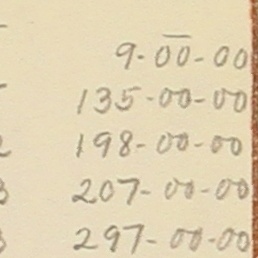 9-00-00
135-00-00
198-00-00
2 207-00-00
3 297-00-00